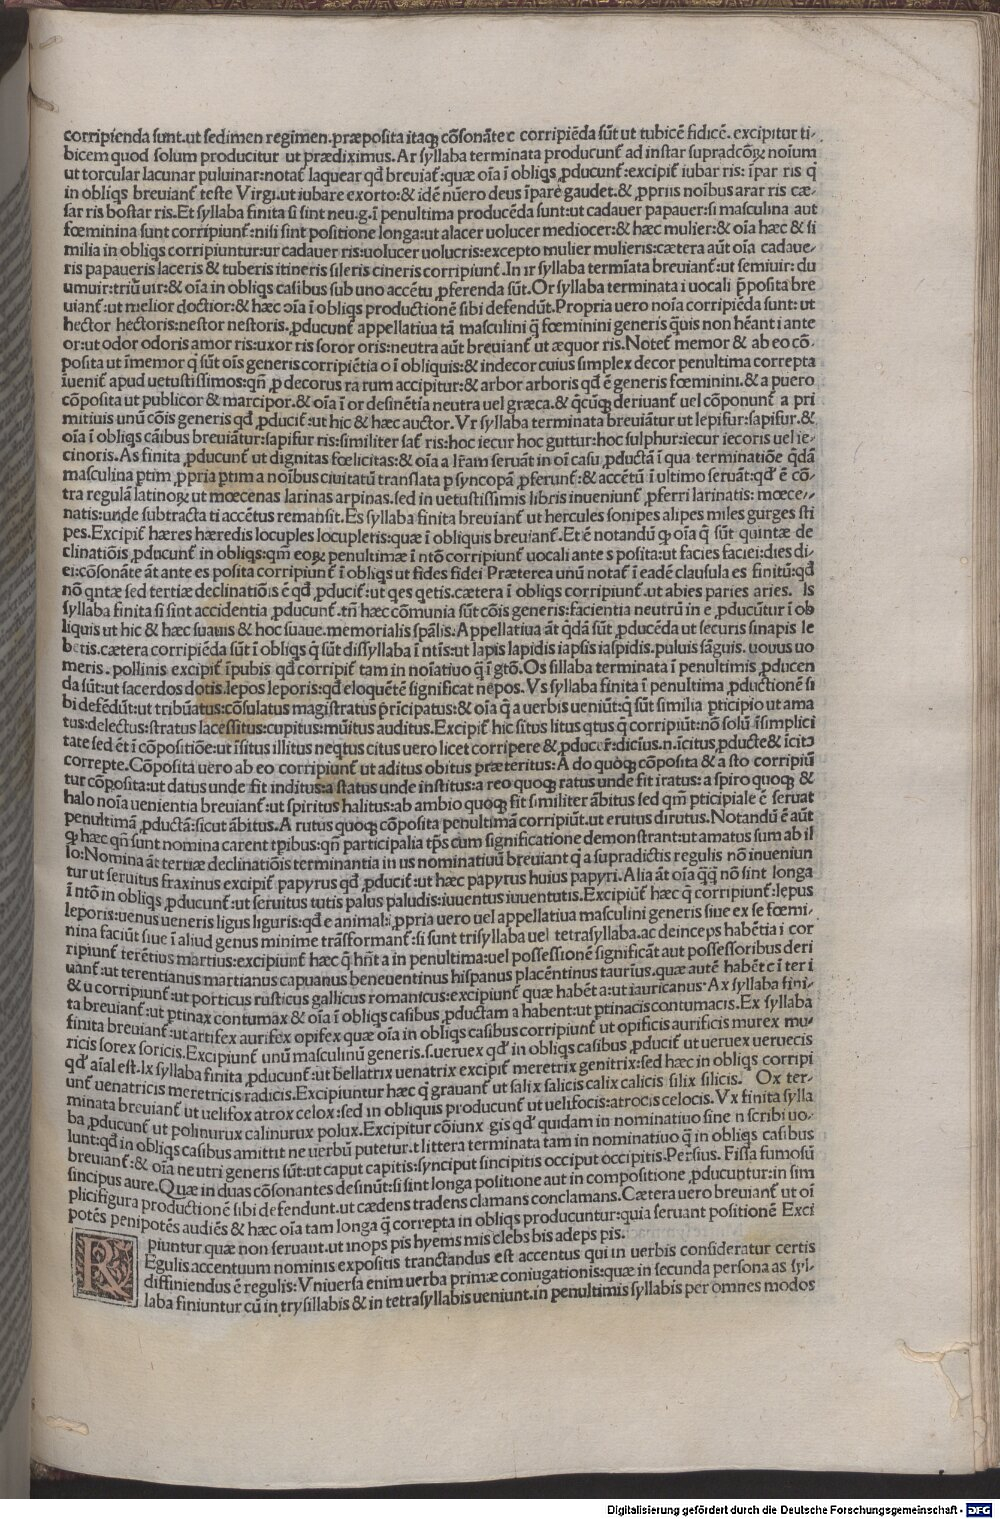 corripienda sunt.ut sedimen regimen.præposita itaqꝫ cõsonãte c corripiẽda sũt ut tubicẽ fidicẽ. excipitur ti-
bicem quod solum producitur ut prædiximus. Ar syllaba terminata producunt᷑ ad instar supradcõꝝ noĩum
ut torcular lacunar puluinar:notat᷑ laquear qd̃ breuiat᷑:quæ oĩa ĩ obliqs ꝓducunt᷑:excipit᷑ iubar ris: ĩpar ris q̃
in obliqs breuiant᷑ teste Virgi.ut iubare exorto:& idẽ nũero deus ĩpare gaudet.& ꝓpriis noĩbus arar ris cæ-
sar ris bostar ris.Et syllaba finita si sint neu.g.ĩ penultima producẽda sunt:ut cadauer papauer:si masculina aut
fœminina sunt corripiunt᷑:nisi sint positione longa:ut alacer uolucer mediocer:& hæc mulier:& oĩa hæc & si
milia in obliqs corripiuntur:ur cadauer ris:uolucer uolucris:excepto mulier mulieris:cætera aũt oĩa cadaue-
ris papaueris laceris & tuberis itineris sileris cineris corripiunt᷑.In ir syllaba termĩata breuiant᷑:ut semiuir: du
umuir:triũ uir:& oĩa in obliqs casibus sub uno accẽtu ꝓferenda sũt.Or syllaba terminata i uocali p̃posita bre
uiant᷑:ut melior doctior:& hæc oĩa ĩ obliqs productionẽ sibi defendũt.Propria uero noĩa corripiẽda sunt: ut
hector hectoris:nestor nestoris. ꝓducunt᷑ appellatiua tã masculini q̃ fœminini generis q̃uis non hẽant i ante
or:ut odor odoris amor ris:uxor ris soror oris:neutra aũt breuiant᷑ ut æquor ris.Notet᷑ memor & ab eo cõ-
posita ut ĩmemor q̃ sũt oĩs generis corripiẽtia o ĩ obliquis:& indecor cuius simplex decor penultima correpta
ĩuenit᷑ apud uetustissimos:qñ ꝓ decorus ra rum accipitur:& arbor arboris qd̃ ẽ generis fœminini.& a puero
cõposita ut publicor & marcipor.& oĩa ĩ or desinẽtia neutra uel græca.& q̃cũqꝫ deriuant᷑ uel cõponunt᷑ a pri
mitiuis unũ cõis generis qd̃ ꝓducit᷑:ut hic & hæc auctor.Vr syllaba terminata breuiãtur ut lepisur:sapisur.&
oĩa ĩ obliqs cãibus breuiãtur:sapisur ris:similiter sat᷑ ris:hoc iecur hoc guttur:hoc sulphur:iecur iecoris uel ie-
cinoris.As finita ꝓducunt᷑ ut dignitas fœlicitas:& oĩa a lr̃am seruãt in oĩ casu ꝓductã ĩ qua terminatiõe q̃dã
masculina ptim ꝓpria ptim a noĩbus ciuitatũ translata p syncopã ꝓferunt᷑:& accẽtũ ĩ ultimo seruãt:qd̃ ẽ cõ-
tra regulã latinoꝝ ut mœcenas larinas arpinas.sed in uetustissimis libris inueniunt᷑ ꝓferri larinatis: mœce-
natis:unde subtracta ti accẽtus remansit.Es syllaba finita breuiant᷑ ut hercules sonipes alipes miles gurges sti
pes.Excipit᷑ hæres hæredis locuples locupletis:quæ ĩ obliquis breuiant᷑.Et ẽ notandũ qꝫ oĩa q̃ sũt quintæ de
clinatiõis ꝓducunt᷑ in obliqs:qm̃ eoꝝ penultimæ ĩ ntõ corripiunt᷑ uocali ante s posita:ut facies faciei:dies di-
ei:cõsonãte ãt ante es posita corripiunt᷑ ĩ obliqs ut fides fidei Præterea unũ notat᷑ ĩ eadẽ clausula es finitũ:qd̃
nõ qntæ sed tertiæ declinatiõis ẽ qd̃ ꝓducit᷑:ut qes qetis.cætera ĩ obliqs corripiunt᷑.ut abies paries aries. Is
syllaba finita si sint accidentia ꝓducunt᷑.tñ hæc cõmunia sũt cõis generis:facientia neutrũ in e ꝓducũtur ĩ ob
liquis ut hic & hæc suauis & hoc suaue.memorialis sp̃alis:Appellatiua ãt q̃dã sũt ꝓducẽda ut securis sinapis le
betis.cætera corripiẽda sũt ĩ obliqs q̃ sũt dissyllaba ĩ nt̃is:ut lapis lapidis iapsis iaspidis.puluis sãguis. uouus uo
meris. pollinis excipit᷑ ĩpubis qd̃ corripit᷑ tam in noĩatiuo q̃ ĩ gtõ.Os sillaba terminata ĩ penultimis ꝓducen
da sũt:ut sacerdos dotis.lepos leporis:qd̃ eloquẽtẽ significat nepos.Vs syllaba finita ĩ penultima ꝓductionẽ si
bi defẽdũt:ut tribũatus:cõsulatus magistratus p̃rĩcipatus:& oĩa q̃ a uerbis ueniũt:q̃ sũt similia pticipio ut ama
tus:delectus:stratus lacessitus:cupitus:mũitus auditus.Excipit᷑ hic situs litus qtus q̃ corripiũt:nõ solũ ĩ simplici
tate sed ẽt ĩ cõpositiõe:ut ĩsitus illitus neqtus citus uero licet corripere & ꝓducer̃:diciũs.n.ĩcitus ꝓducte& ĩcitꝰ
correpte.Cõposita uero ab eo corripiunt᷑ ut aditus obitus præteritus:A do quoqꝫ cõposita & a sto corripiũ
tur cõposita:ut datus unde fit inditus:a status unde institus:a reo quoqꝫ ratus unde fit iratus: a spiro quoqꝫ &
halo noĩa uenientia breuiant᷑:ut spiritus halitus:ab ambio quoqꝫ fit similiter ãbitus sed qm̃ pticipiale ẽ seruat
penultimã ꝓductã:sicut ãbitus.A rutus quoqꝫ cõposita penultimã corripiũt.ut erutus dirutus.Notandũ ẽ aũt
qꝫ hæc qñ sunt nomina carent tpibus:qñ participalia tp̃s cum significatione demonstrant:ut amatus sum ab il
lo:Nomina ãt tertiæ declinatiõis terminantia in us nominatiuũ breuiant q̃ a supradictis regulis nõ inueniun
tur ut seruitus fraxinus excipit᷑ papyrus qd̃ ꝓducit᷑:ut hæc papyrus huius papyri.Alia ãt oĩa q̃q̃ nõ sint longa
ĩ ntõ in obliqs ꝓducunt᷑:ut seruitus tutis palus paludis:iuuentus iuuentutis.Excipiũt᷑ hæc q̃ corripiunt᷑:lepus
leporis:uenus ueneris ligus liguris:qd̃ e animal:ꝓpria uero uel appellatiua masculini generis siue ex se fœmi-
nina faciũt siue ĩ aliud genus minime trãsformant᷑:si sunt trisyllaba uel tetrasyllaba.ac deinceps habẽtia i cor
ripiunt᷑ terẽtius martius:excipiunt᷑ hæc q̃ hñt a in penultima:uel possessionẽ significãt aut possessoribus deri
uant᷑:ut terentianus martianus capuanus beneuentinus hispanus placẽtinus taurĩus.quæ autẽ habẽt c ĩ ter i
& u corripiunt᷑:ut porticus rusticus gallicus romanicus:excipiunt᷑ quæ habẽt a:ut iauricanus·Ax syllaba fini-
ta breuiant᷑:ut ptinax contumax & oĩa ĩ obliqs casibus ꝓductam a habent:ut ptinacis contumacis.Ex syllaba
finita breuiant᷑:ut artifex aurifex opifex quæ oĩa in obliqs casibus corripiunt᷑ ut opificis aurificis murex mu-
ricis sorex soricis.Excipiunt᷑ unũ masculinũ generis.s.ueruex qd̃ in obliqs casibus ꝓducit᷑ ut ueruex ueruecis
qd̃ aĩal est.Ix syllaba finita ꝓducunt᷑:ut bellatrix uenatrix excipit᷑ meretrix genitrix:sed hæc in obliqs corripi
unt᷑ uenatricis meretricis radicis.Excipiuntur hæc q̃ grauant᷑ ut salix salicis calix calicis silix silicis. Ox ter-
minata breuiant᷑ ut uelifox atrox celox:sed in obliquis producunt᷑ ut uelifocis:atrocis celocis.Vx finita sylla
ba ꝓducunt᷑ ut polinurux calinurux polux.Excipitur cõiunx gis qd̃ quidam in nominatiuo sine n scribi uo-
lunt:qd̃ in obliqs casibus amittit ne uerbũ putetur.t littera terminata tam in nominatiuo q̃ in obliqs casibus
breuiant᷑:& oĩa neutri generis sũt:ut caput capitis:synciput sincipitis occiput occipitis.Persius. Fissa fumosũ
sincipus aure.Quæ in duas cõsonantes desinũt:si sint longa positione aut in compositione ꝓducuntur:in sim
plicifigura productionẽ sibi defendunt.ut cædens tradens clamans conclamans.Cætera uero breuiant᷑ ut oĩ
potẽs penipotẽs audiẽs & hæc oĩa tam longa q̃ correpta in obliqs producuntur:quia seruant positionẽ Exci
piuntur quæ non seruant.ut inops pis hyems mis clebs bis adeps pis.
REgulis accentuum nominis expositis tranctandus est accentus qui in uerbis consideratur certis
diffiniendus ẽ regulis:Vniuersa enim uerba primæ coniugationis:quæ in secunda persona as syl-
laba finiuntur cũ in trysillabis & in tetrasyllabis ueniunt.in penultimis syllabis per omnes modos
Digitalisierung gefördert durch die Deutsche Forschungsgemeinschaft - DFG